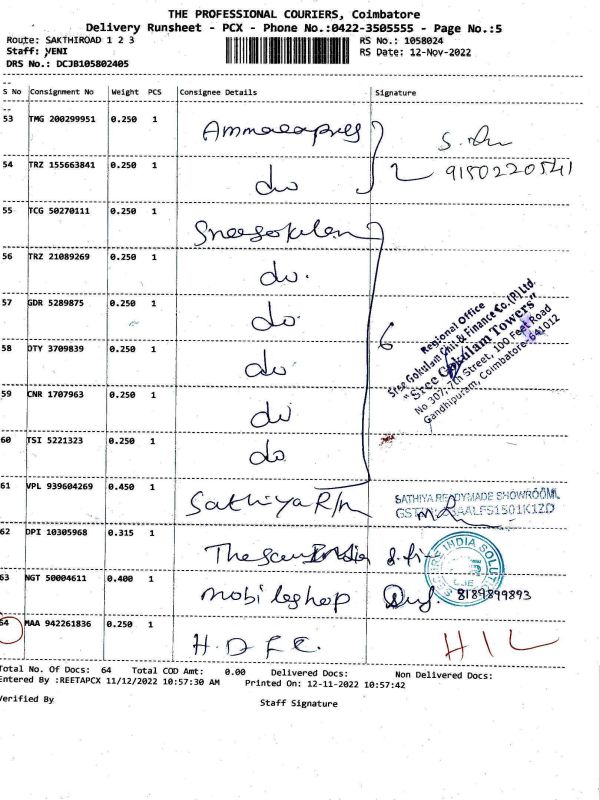 THE PROFESSIONAL COURIERS, Coimbatore
Delivery Runsheet - PCX - Phone No.:0422-3505555 - Page No.:5
Route: SAKTHIROAD 1 2 3
RS No.: 1058024
Staff: YENI
RS Date: 12-Nov-2022
DRS No.: DCJB105802405
S No Consignment No Weight PCS Consignee Details Signature
53 TMG 200299951 0.250 1
S.
54 TRZ 155663841 0.250 1 do 2 9150220541
55 TCG 50270111 0.250 1 Sreegokulam
56 TRZ 21089269 0.250 1 do.
57 GDR 5289875 0.250 1 do
58 DTY 3709839 0.250 1 do 6
59 CNR 1707963 0.250 1 do
60 TSI 5221323 0.250 1 do
Regional Office
Sree Gokulam Chit & Finance Co.(P) Ltd.
"Sree Gokulam Towers"
No 307, 7th Street, 100 Feet Road
Gandhipuram, Coimbatore-641012
61 VPL 939604269 0.450 1 Sathiya R/m
SATHIYA READYMADE SHOWROOM
62 DPI 10305968 0.315 1 The India
INDIA
CBE
63 NGT 50004611 0.400 1 mobileshop 8189899893
64 MAA 942261836 0.250 1 H.D.F.C.
Total No. Of Docs: 64 Total COD Amt: 0.00 Delivered Docs: Non Delivered Docs:
Entered By :REETAPCX 11/12/2022 10:57:30 AM Printed On: 12-11-2022 10:57:42
Verified By Staff Signature